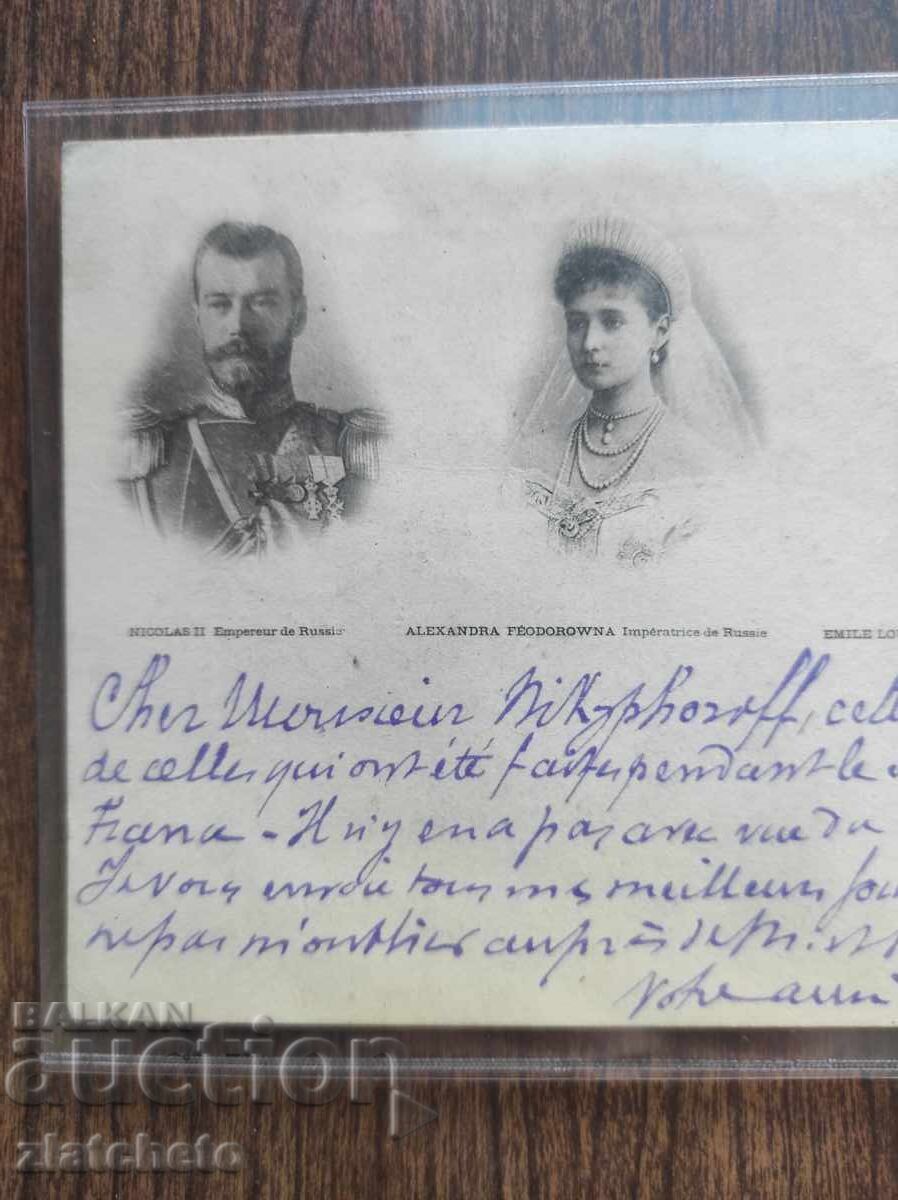 NICOLAS II Empereur de Russie
ALEXANDRA FÉODOROWNA Impératrice de Russie
EMILE LOU
Cher Monsieur Nikyphoroff, cell
de celles qui ont été faites pendant le
Il n'y en a pas avec vue du
Je vous envoie tous mes meilleurs sou
ne pas m'oublier auprès de
Votre ami
BALKAN
auction
zlatcheto